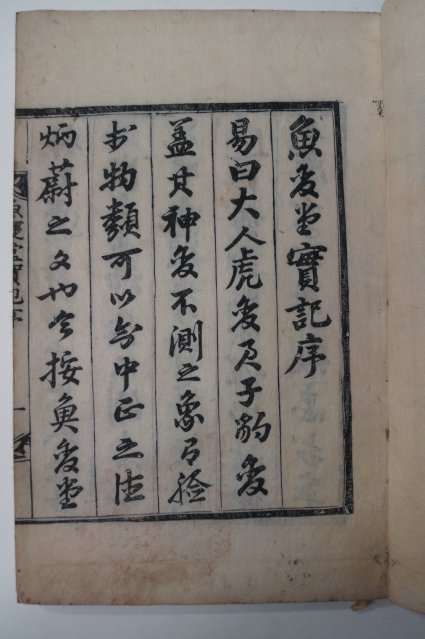 魚變堂實記序
易曰大人虎變君子豹變
盖其神變不測之象有驗
於物類可以中正之德
炳蔚之文也今按魚變堂
魚變堂實記序 一